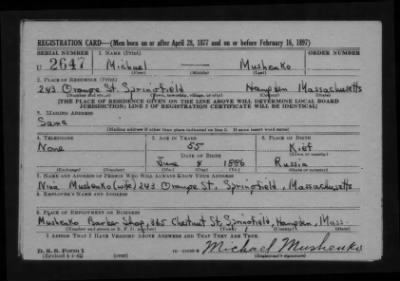 REGISTRATION CARD—(Men born on or after April 28, 1877 and on or before February 16, 1897)
SERIAL NUMBER 1. NAME (Print) ORDER NUMBER
U 2647 Michael — Mushenko
(First) (Middle) (Last)
2. PLACE OF RESIDENCE (Print)
243 Orange St. Springfield Hampden Massachusetts
(Number and street) (Town, township, village, or city) (County) (State)
[THE PLACE OF RESIDENCE GIVEN ON THE LINE ABOVE WILL DETERMINE LOCAL BOARD
JURISDICTION; LINE 2 OF REGISTRATION CERTIFICATE WILL BE IDENTICAL]
3. MAILING ADDRESS
Same
[Mailing address if other than place indicated on line 2. If same insert word same]
4. TELEPHONE 5. AGE IN YEARS 6. PLACE OF BIRTH
None 55 Kief
DATE OF BIRTH
June 8 1886 Russia
7. NAME AND ADDRESS OF PERSON WHO WILL ALWAYS KNOW YOUR ADDRESS
Nina Mushenko (wife) 243 Orange St., Springfield, Massachusetts
8. EMPLOYER'S NAME AND ADDRESS
9. PLACE OF EMPLOYMENT OR BUSINESS
Mushenko Barber Shop, 865 Chestnut St. Springfield, Hampden, Mass.
(Number and street or R. F. D. number) (Town) (County) (State)
I AFFIRM THAT I HAVE VERIFIED ABOVE ANSWERS AND THAT THEY ARE TRUE.
D. S. S. Form 1
Michael Mushenko